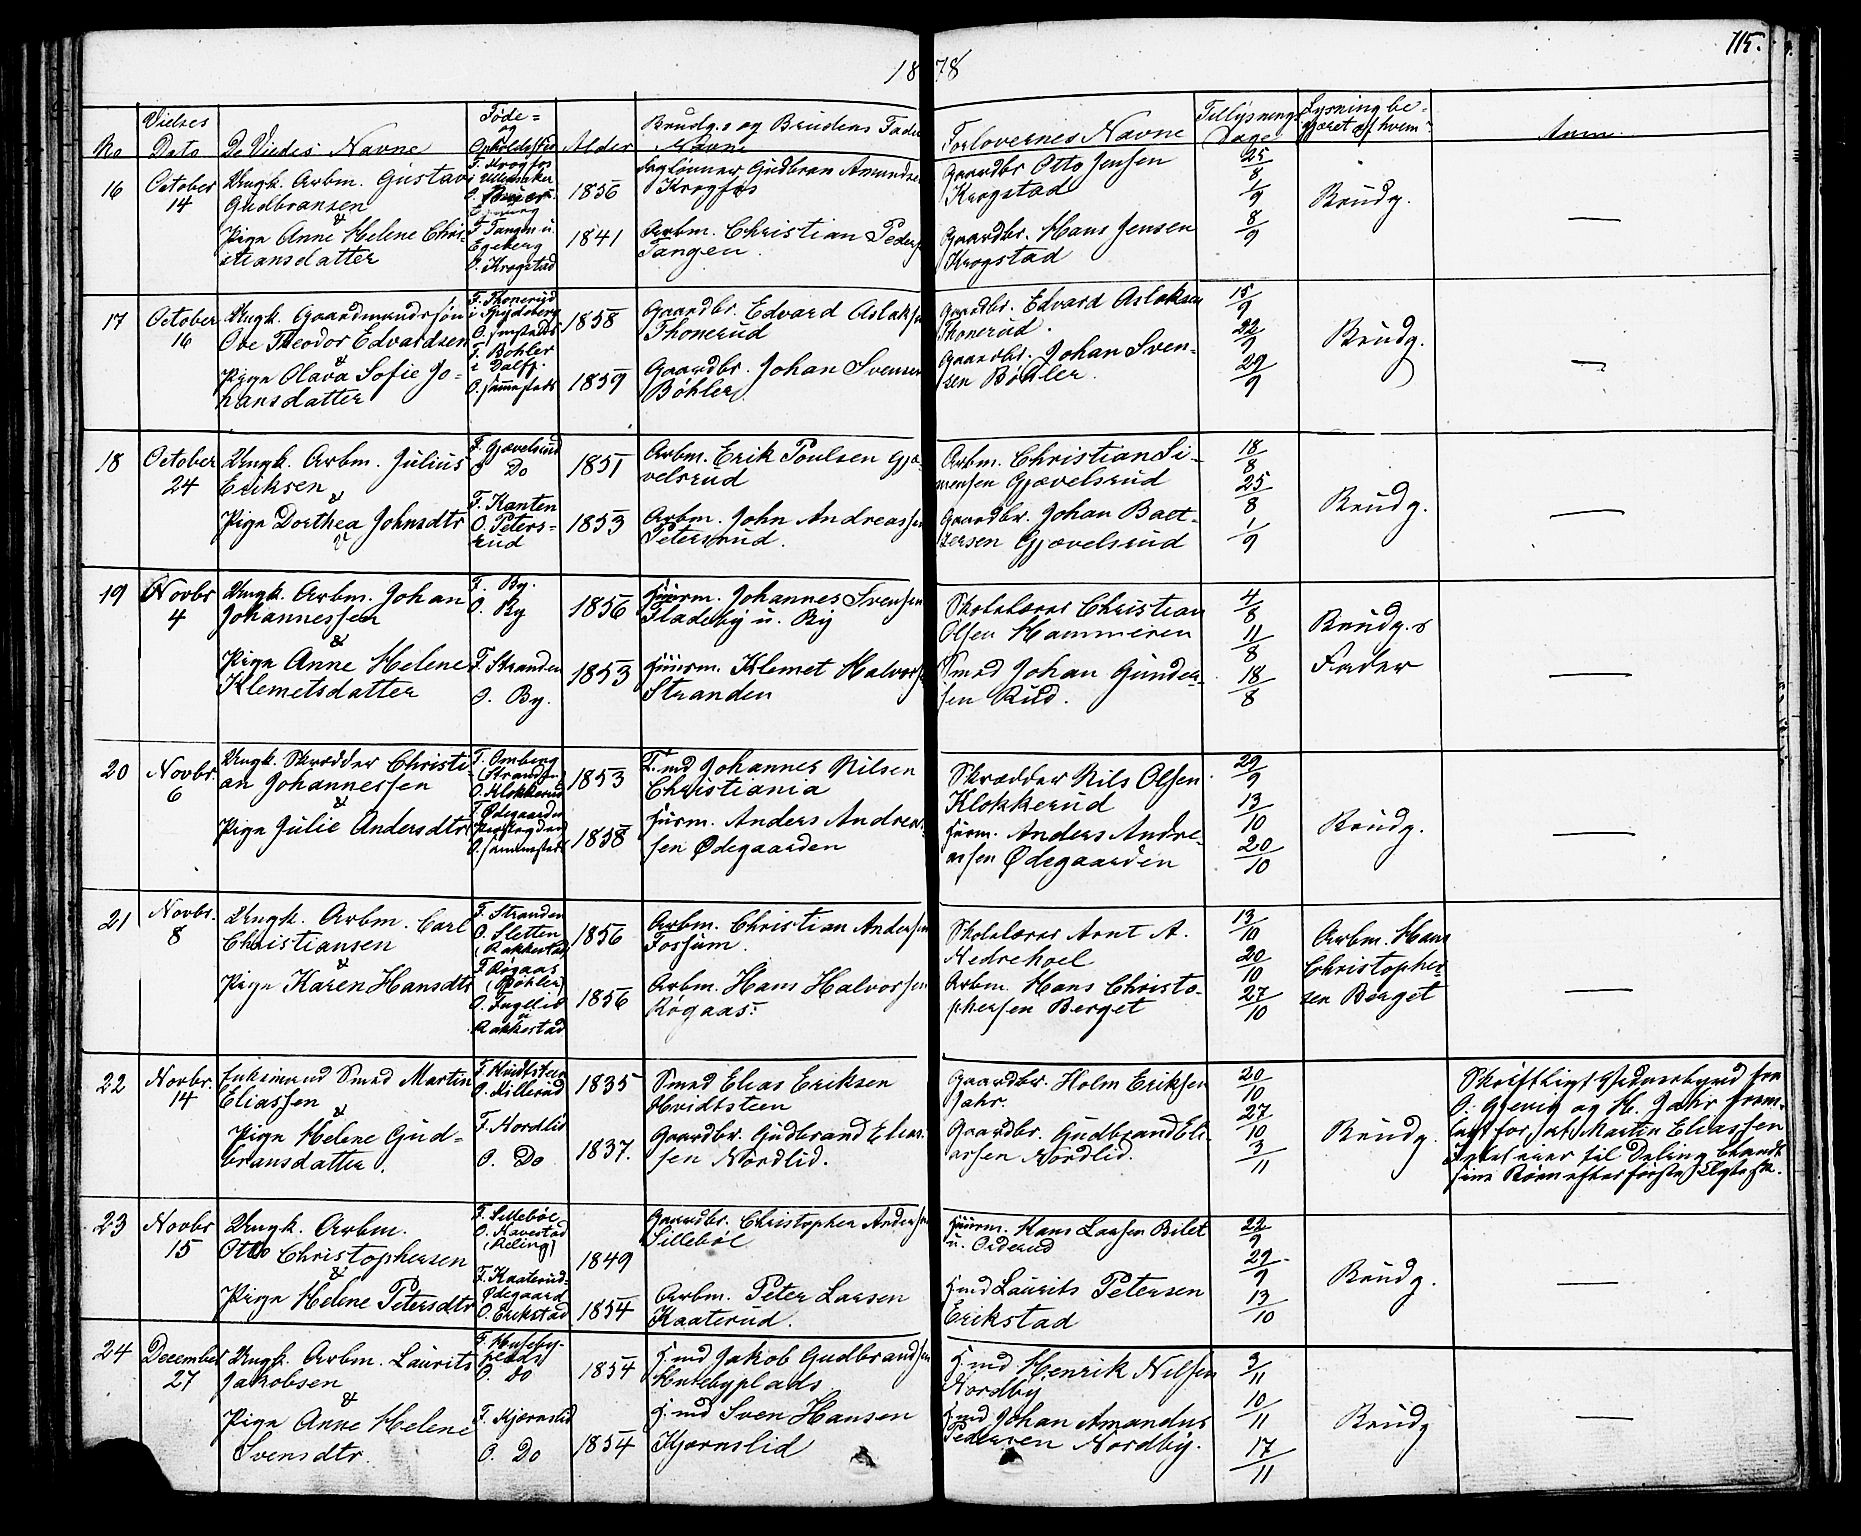 1878
115.
No
Vielses Dato
De Viedes Navne
Føde= og Opholdssted
Alder
Brudg.s og Brudens Faders Navne
Forlovernes Navne
Tillysnings Dage
Lysning begjæret af hvem
Anm.
16
October 14
Ungk. Arbm. Gustav
Gudbransen
&
Pige Anne Helene Chri-
stiansdatter
F. Krogfos
F. Tangen u.
Egeberg
O. Krogstad
1856
1841
Gudbran Amundsen
Krogfos
Arbm. Christian Peders
Tangen.
Gaardbr Otto Jensen
Krogstad
Gaardbr. Hans Jensen
Krogstad
25/8
1/9
8/9
Brudg.
—
17
October 16
Ungk. Gaardmandssøn
Ove Theodor Edvardsen
&
Pige Olava Sofie Jo-
hansdatter
F. Thonerud
i Spydeberg
F. Bøhler
i
O. sammesteds
1858
1859
Gaardbr. Edvard Aslaksen
Thonerud
Gaardbr. Johan Svensen
Bøhler
Gaardbr. Edvard Aslaksen
Thonerud.
Gaardbr. Johan Sven-
sen Bøhler.
15/9
22/9
29/9
Brudg.
—
18
October 24
Ungk. Arbm. Julius
Eriksen
&
Pige Dorthea Johnsdtr
F. Gjævelsrud
O Do
F. Kanten
O. Peters-
rud
1851
1853
Arbm. Erik Poulsen Gjæ-
velsrud
Arbm. John Andreassen
Petersrud.
Arbm. Christian Si-
mensen Gjævelsrud
Gaardbr. Johan Baet-
zersen Gjævelsrud
18/8
25/8
1/9
Brudg.
—
19
Novbr 4
Ungk. Arbm. Johan
Johannessen
&
Pige Anne Helene
Klemetsdatter
F. By.
O. By
F. Stranden
O. By.
1856
1853
Huusm. Johannes Svensen
Fladeby u. By
Huusm. Klemet Halvors
Stranden
Skolelærer Christian
Olsen Hammeren
Smed Johan Gunder-
sen Rud.
4/8
11/8
18/8
Brudg.s
Fader
—
20
Novbr. 6
Ungk. Skrædder Christi
an Johannessen
&
Pige Julie Andersdtr
F. Omberg
(Stranden
O. Klokkerud
F. Ødegaarden
O. sammesteds
1853
1858
F. md Johannes Nilsen
Christiania
Huusm. Anders Andreas-
sen Ødegaarden
Skrædder Nils Olsen
Klokkerud
Huusm. Anders Andre-
assen Ødegaarden
29/9
13/10
20/10
Brudg.
—
21
Novbr. 8
Ungk. Arbm. Carl
Christiansen
&
Pige Karen Hansdtr
F. Stranden
O. Sletten
(Rakkestad
F. Røgaas
(Bøhler)
O. Fugelid
Rakkestad
1856
1856
Arbm. Christian Andersen
Fossum.
Arbm. Hans Halvorsen
Røgaas:
Skolelærer Arnt A.
Nedrehoel
Arbm. Hans Christo-
phersen Berget
13/10
20/10
27/10
Arbm. Hans
Christopher-
sen Berget
—
22
Novbr. 14
Enkemand Smed Martin
Eliassen
&
Pige Helene Gud-
bransdatter.
F. Hvidtsteen
O. Killerud
F. Nordlid
O. Do
1835
1837.
Smed Elias Eriksen
Hvidtsteen
Gaardbr. Gudbrand Elias-
sen Nordlid.
Gaardbr. Holm Eriksen
Jahr.
Gaardbr. Gudbrand Eli-
assen Nordlid.
20/10
27/10
3/11
Brudg.
Skriftligt Vidnesbyrd fra
O. Gjevig og H. Jahr frem-
lagt for, at Martin Eliassen
Intet eier til Deling blandt
sine Børn efter første Ægtesk.
23
Novbr 15
Ungk. Arbm.
Otto Christophersen
&
Pige Helene Petersdtr
F. Sillebøl
O. Kavestad
(Reling)
F. Kaaterud-
Ødegaard
O. Erikstad
1849
1854
Gaardbr. Christopher Andersen
Sillebøl
Arbm. Peter Larsen
Kaaterud.
Huusm. Hans Larsen Bilet
u. Orderud
H.md Laurits Petersen
Erikstad
22/9
29/9
13/10
Brudg.
—
24
December 27
Ungk. Arbm. Laurits
Jakobsen
&
Pige Anne Helene
Svensdtr.
F. Husebyplads
O. do
F. Kjærnslid
O. Do
1854
1854
H.md Jakob Gudbrandsen
Husebyplads
H.md Sven Hansen
Kjærnslid
H.md Henrik Nilsen
Nordby
H.md Johan Amandus
Pedersen Nordby.
3/11
10/11
17/11
Brudg
—